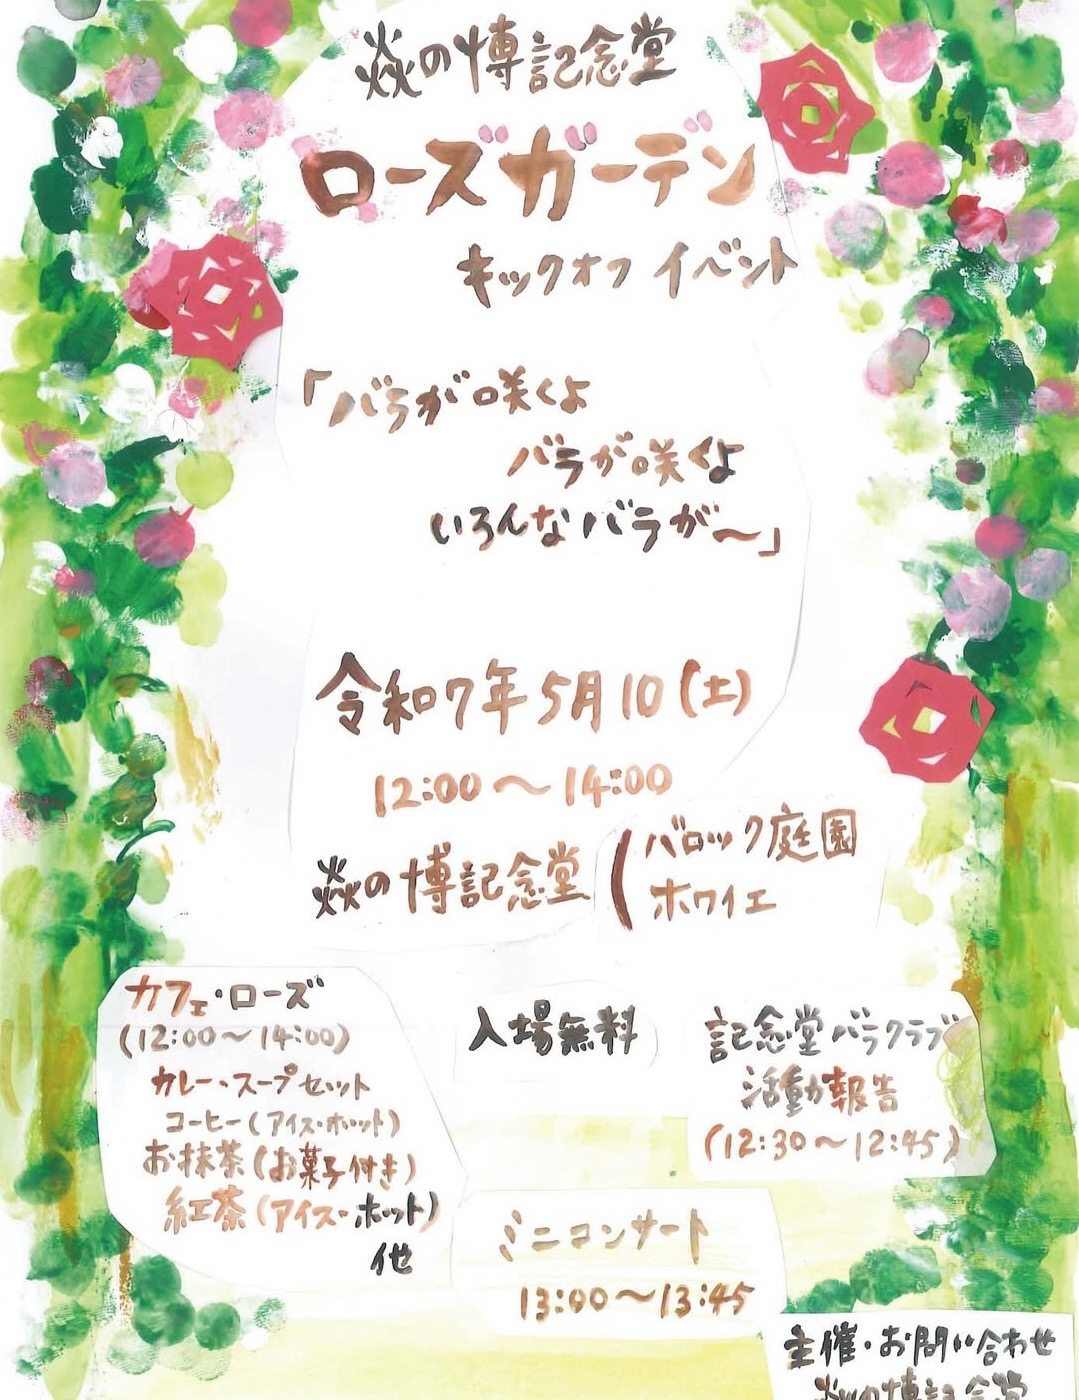 焱の博記念堂
ローズガーデン
キックオフ イベント
「バラが咲くよ
バラが咲くよ
いろんなバラが～」
令和7年5月10(土)
12:00～14:00
焱の博記念堂(バロック庭園
ホワイエ
カフェ・ローズ
(12:00～14:00)
カレー・スープセット
コーヒー(アイス・ホット)
お抹茶(お菓子付き)
紅茶(アイス・ホット)
他
入場無料
記念堂バラクラブ
活動報告
(12:30～12:45)
ミニコンサート
13:00～13:45
主催・お問い合わせ
焱の博記念堂